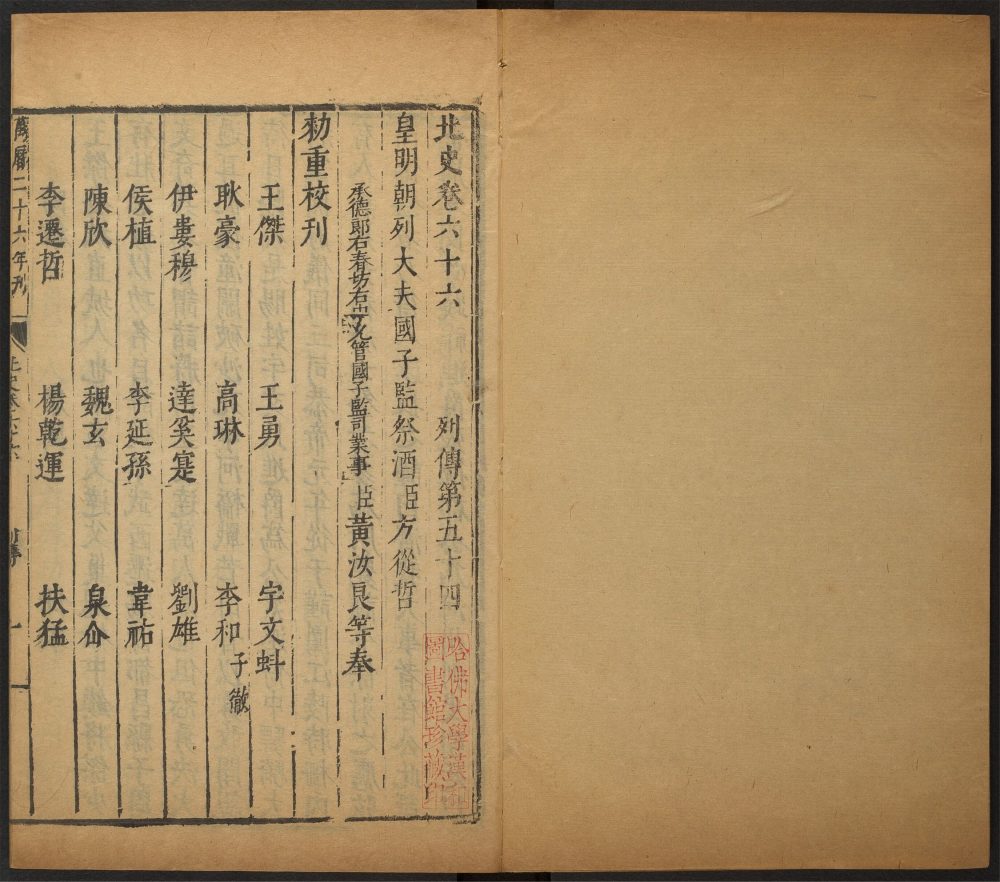 北史卷六十六　列傳第五十四
皇明朝列大夫國子監祭酒臣方從哲
承德郎右春坊右中允管國子監司業事臣黃汝良等奉
勑重校刊
王傑　王勇　宇文虯
耿豪　高琳　李和 子徹
伊婁穆　達奚寔　劉雄
侯植　李延孫　韋祐
陳欣　魏玄　泉仚
李遷哲　楊乾運　扶猛
萬曆二十六年刊
北史卷六十六
列傳
一
哈佛大學漢和
圖書館珍藏印